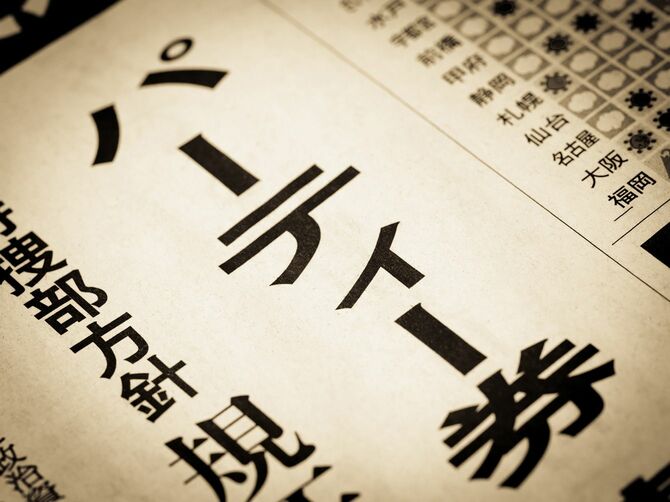 水戸
宇都宮
前橋
甲府
静岡
札幌
仙台
名古屋
大阪
福岡
パーティー券
捜部方針
規
政治資